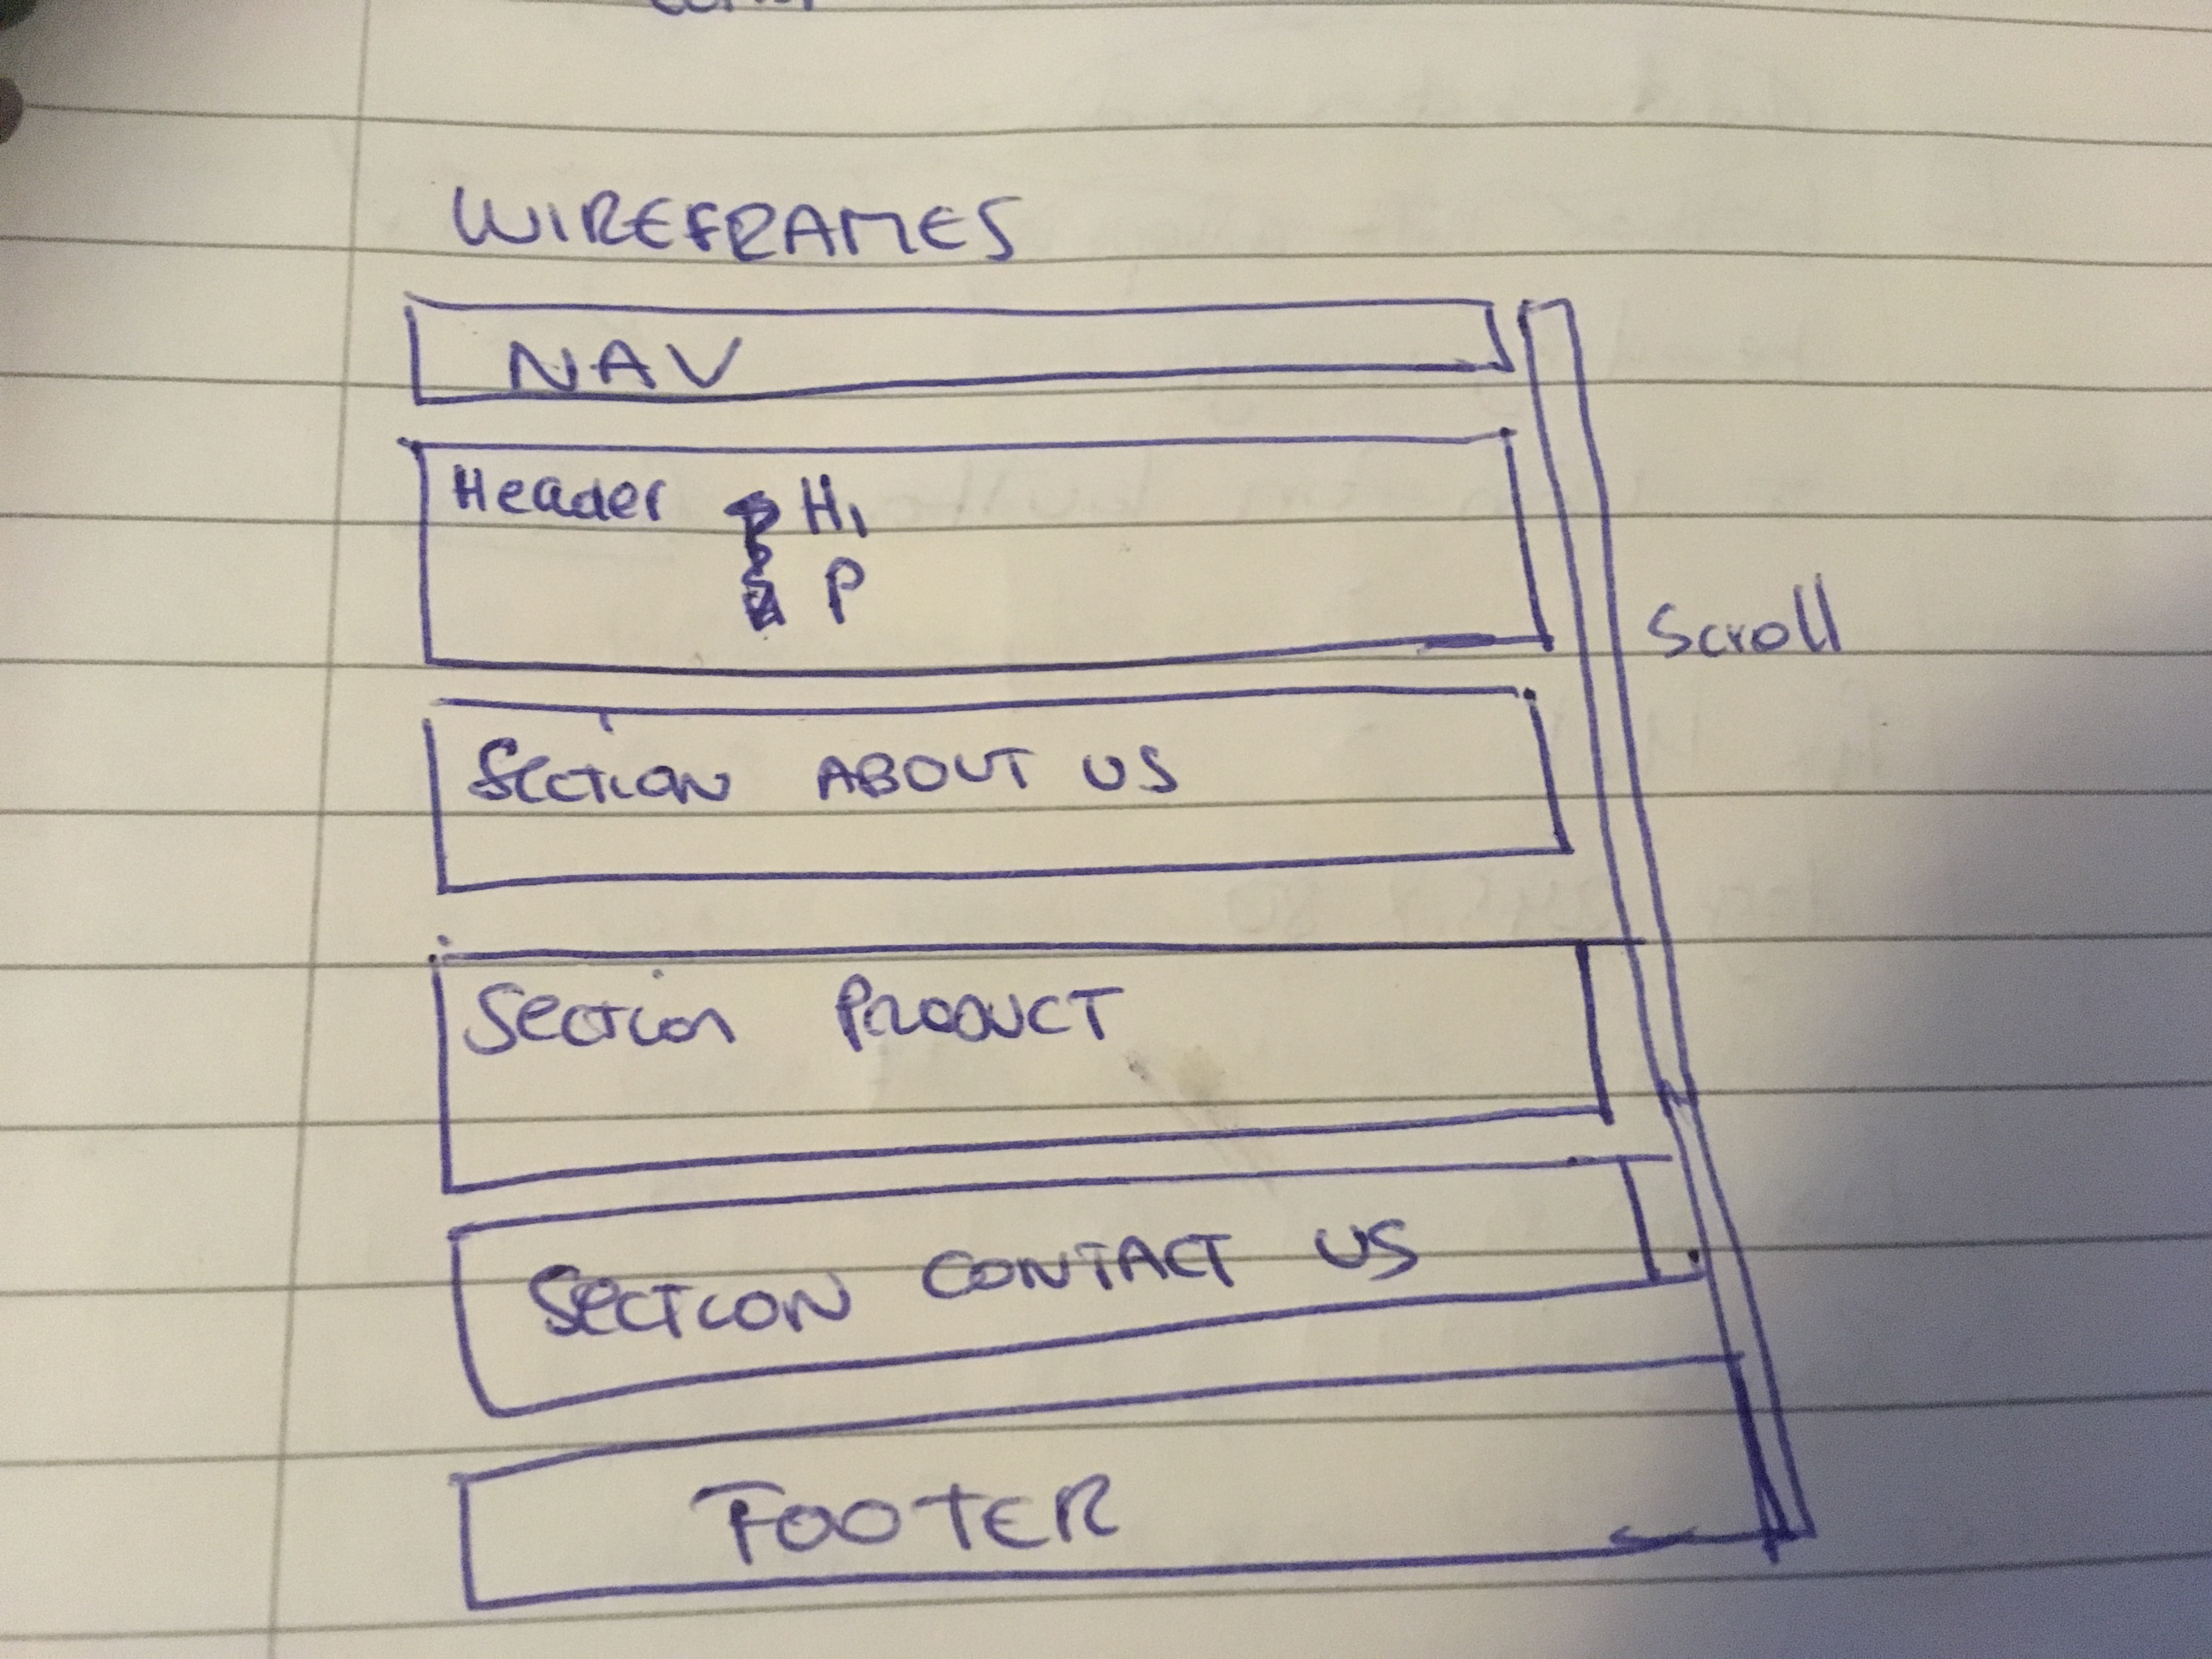 WIREFRAMES
NAV
Header H1
P
Scroll
Section ABOUT US
Section PRODUCT
SECTION CONTACT US
FOOTER